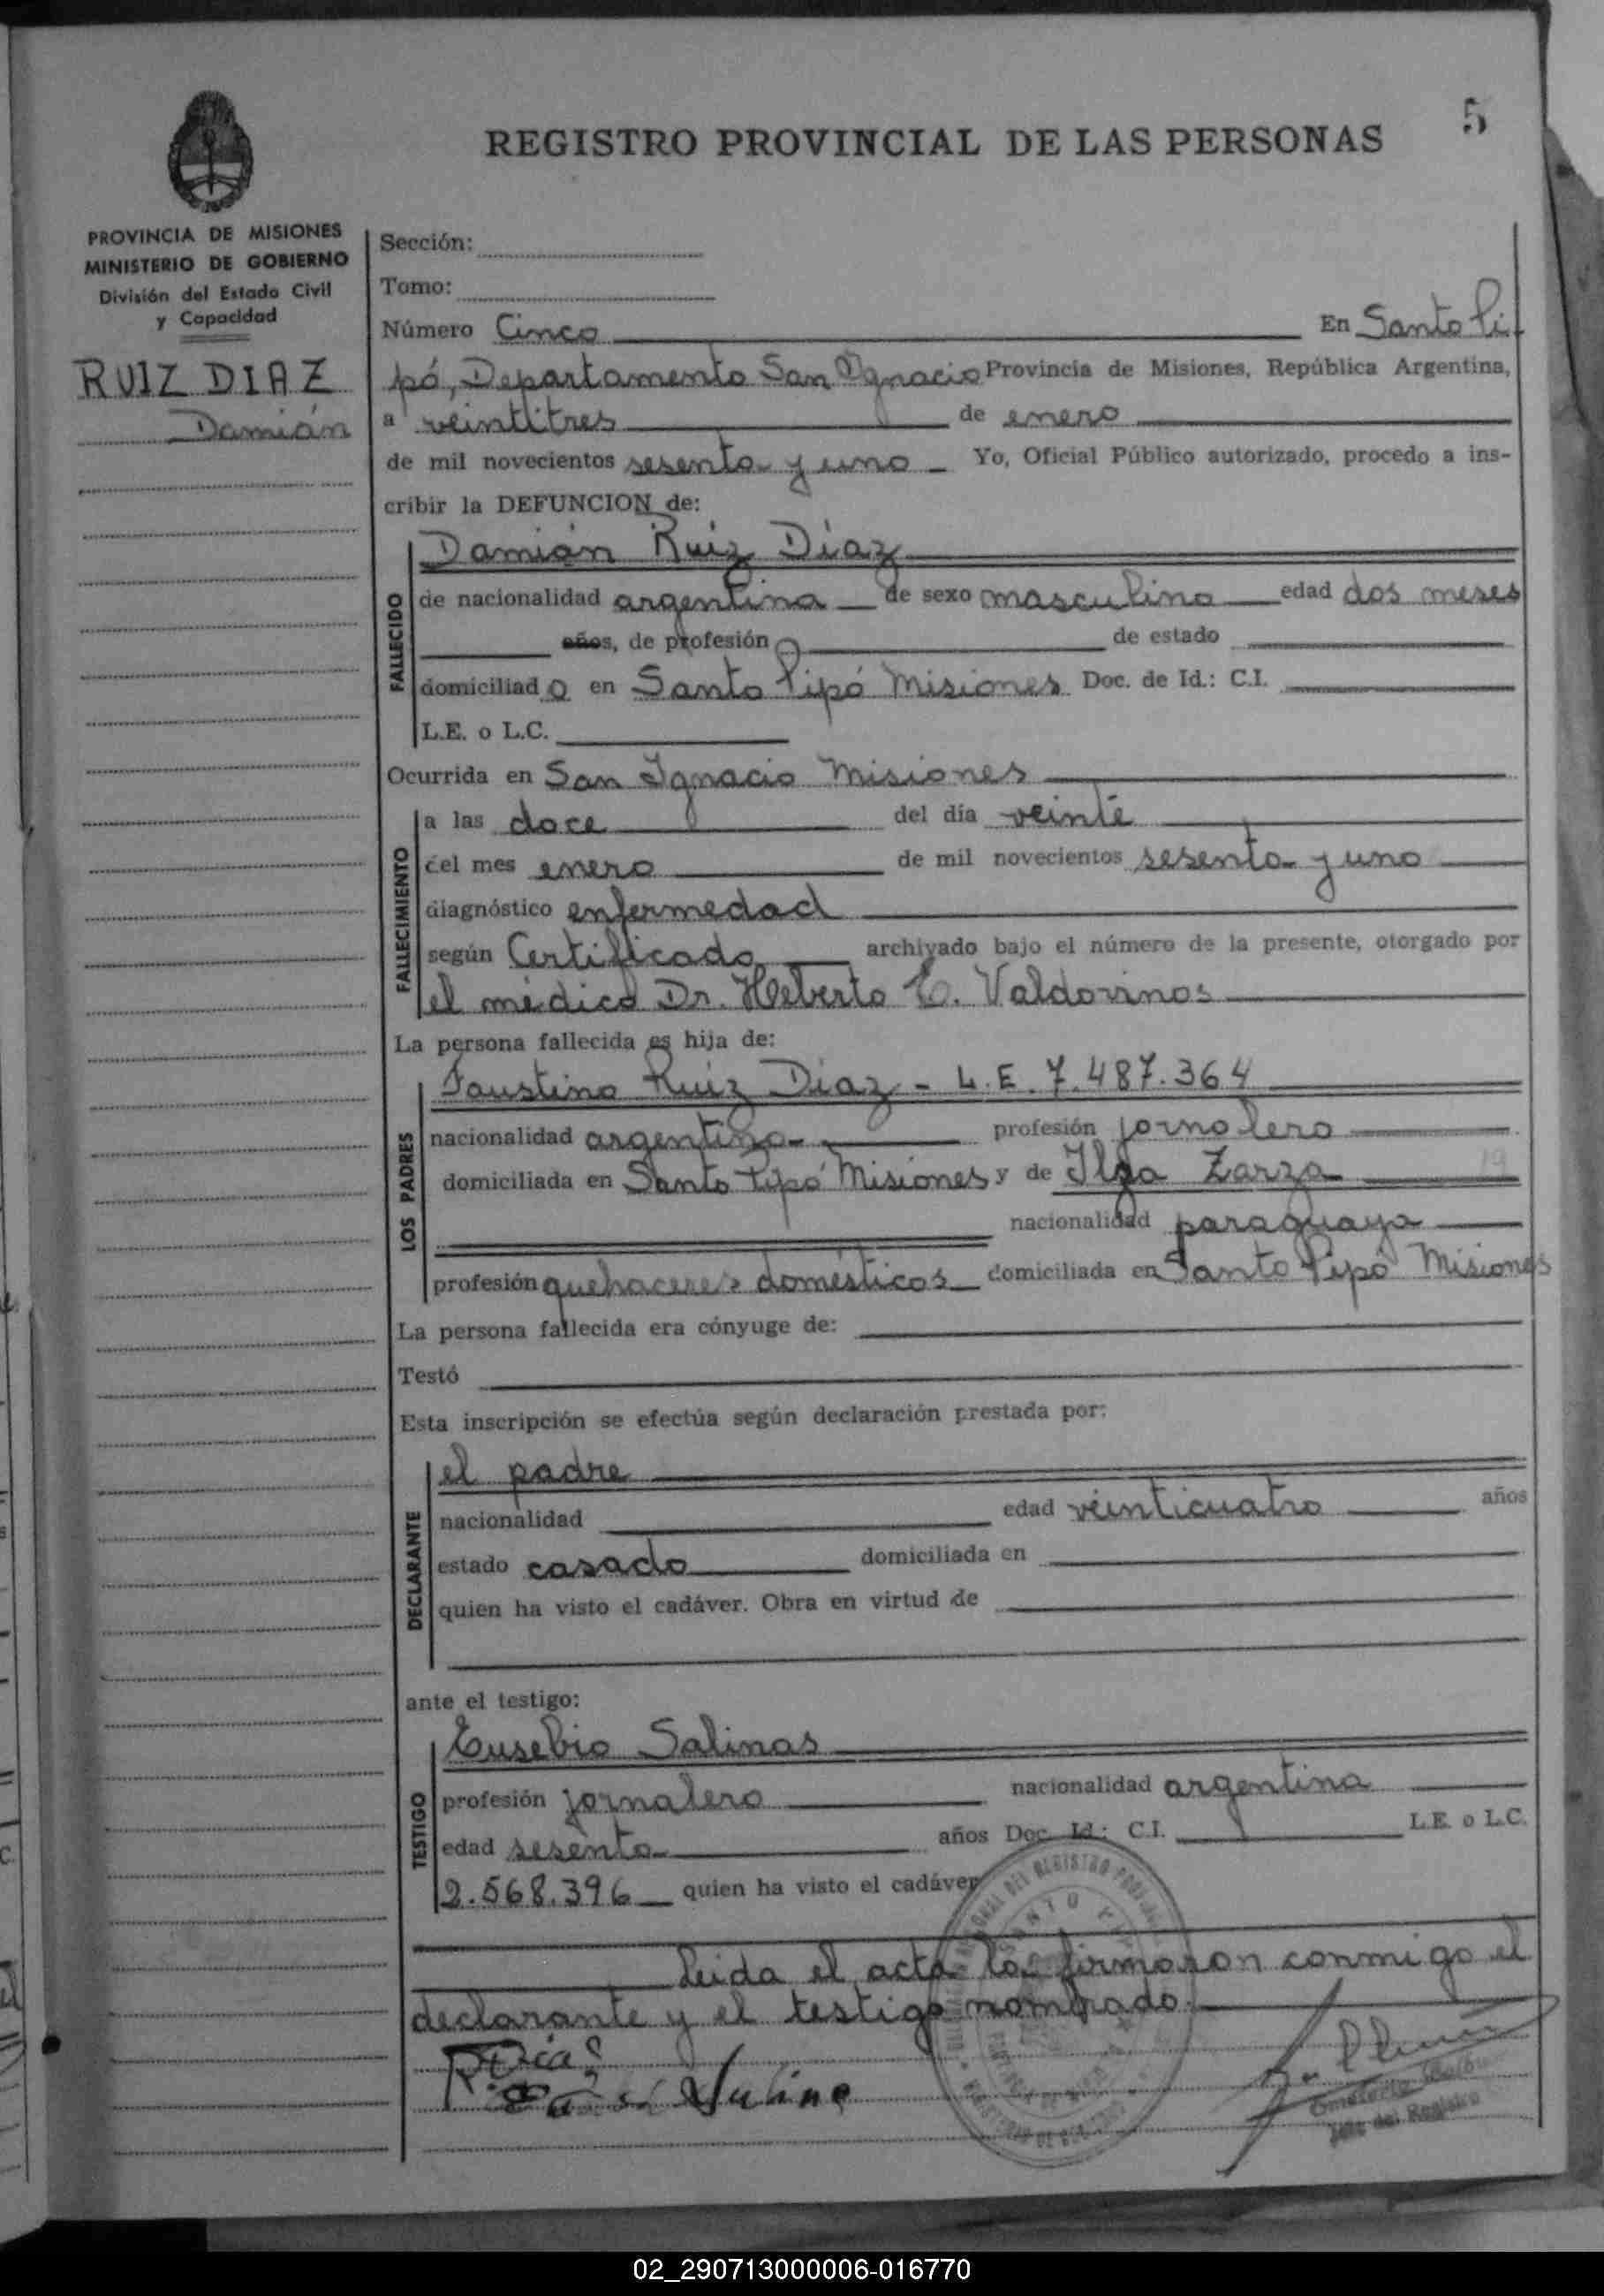 5
REGISTRO PROVINCIAL DE LAS PERSONAS
PROVINCIA DE MISIONES
MINISTERIO DE GOBIERNO
División del Estado Civil
y Capacidad
RUIZ DIAZ
Damián
Sección:
Tomo:
Número Cinco En Santo Pi-
pó, Departamento San Ignacio Provincia de Misiones, República Argentina,
a veintitres de enero
de mil novecientos sesenta y uno Yo, Oficial Público autorizado, procedo a ins-
cribir la DEFUNCION de:
FALLECIDO
Damián Ruiz Diaz
de nacionalidad argentina de sexo masculino edad dos meses
años, de profesión de estado
domiciliado en Santo Pipó Misiones Doc. de Id.: C.I.
L.E. o L.C.
Ocurrida en San Ignacio Misiones
FALLECIMIENTO
a las doce del día veinte
del mes enero de mil novecientos sesenta y uno
diagnóstico enfermedad
según Certificado archivado bajo el número de la presente, otorgado por
el médico Dr. Heberto C. Valdovinos
La persona fallecida es hija de:
LOS PADRES
Faustino Ruiz Diaz - L.E. 7.487.364
nacionalidad argentina profesión jornalero
domiciliada en Santo Pipó Misiones y de Ilda Zarza 19
nacionalidad paraguaya
profesión quehaceres domésticos domiciliada en Santo Pipó Misiones
La persona fallecida era cónyuge de:
Testó
Esta inscripción se efectúa según declaración prestada por:
DECLARANTE
el padre
nacionalidad edad veinticuatro años
estado casado domiciliada en
quien ha visto el cadáver. Obra en virtud de
ante el testigo:
TESTIGO
Eusebio Salinas
profesión jornalero nacionalidad argentina
edad sesenta años Doc. Id.: C.I. L.E. o L.C.
2.568.396 quien ha visto el cadáver
Leida el acta la firmaron conmigo el
declarante y el testigo nombrado.
Jefe del Registro
02_290713000006-016770